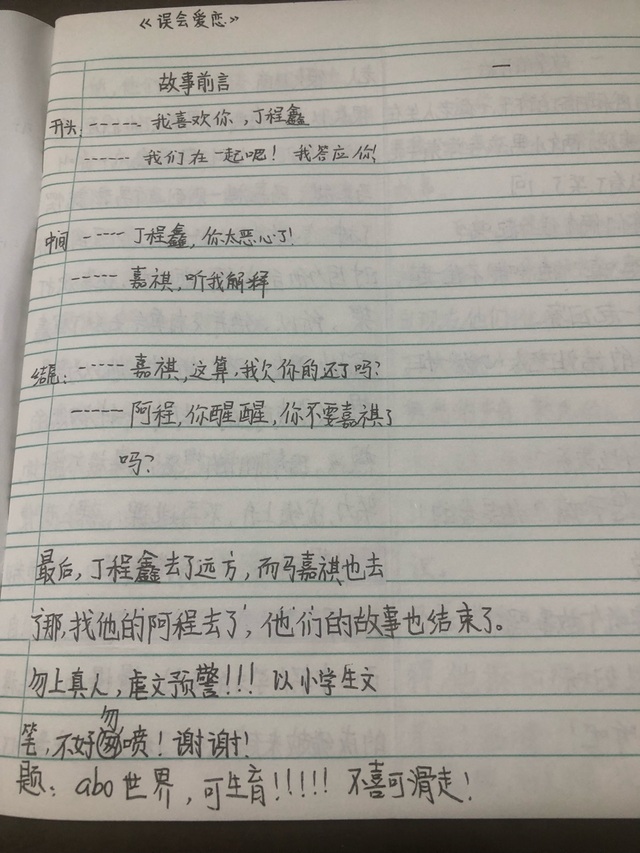 《误会爱恋》
故事前言
开头: ------ 我喜欢你,丁程鑫
------ 我们在一起吧! 我答应你!
中间 ----- 丁程鑫,你太恶心了!
----- 嘉祺,听我解释
结尾: ------ 嘉祺,这算,我欠你的还了吗?
------ 阿程,你醒醒,你不要嘉祺了
吗?
最后,丁程鑫去了远方,而马嘉祺也去
了那,找他的阿程去了,他们的故事也结束了。
勿上真人,虐文预警!!! 以小学生文
笔,不好勿喷! 谢谢!
题: abo世界,可生育!!!!! 不喜可滑走!